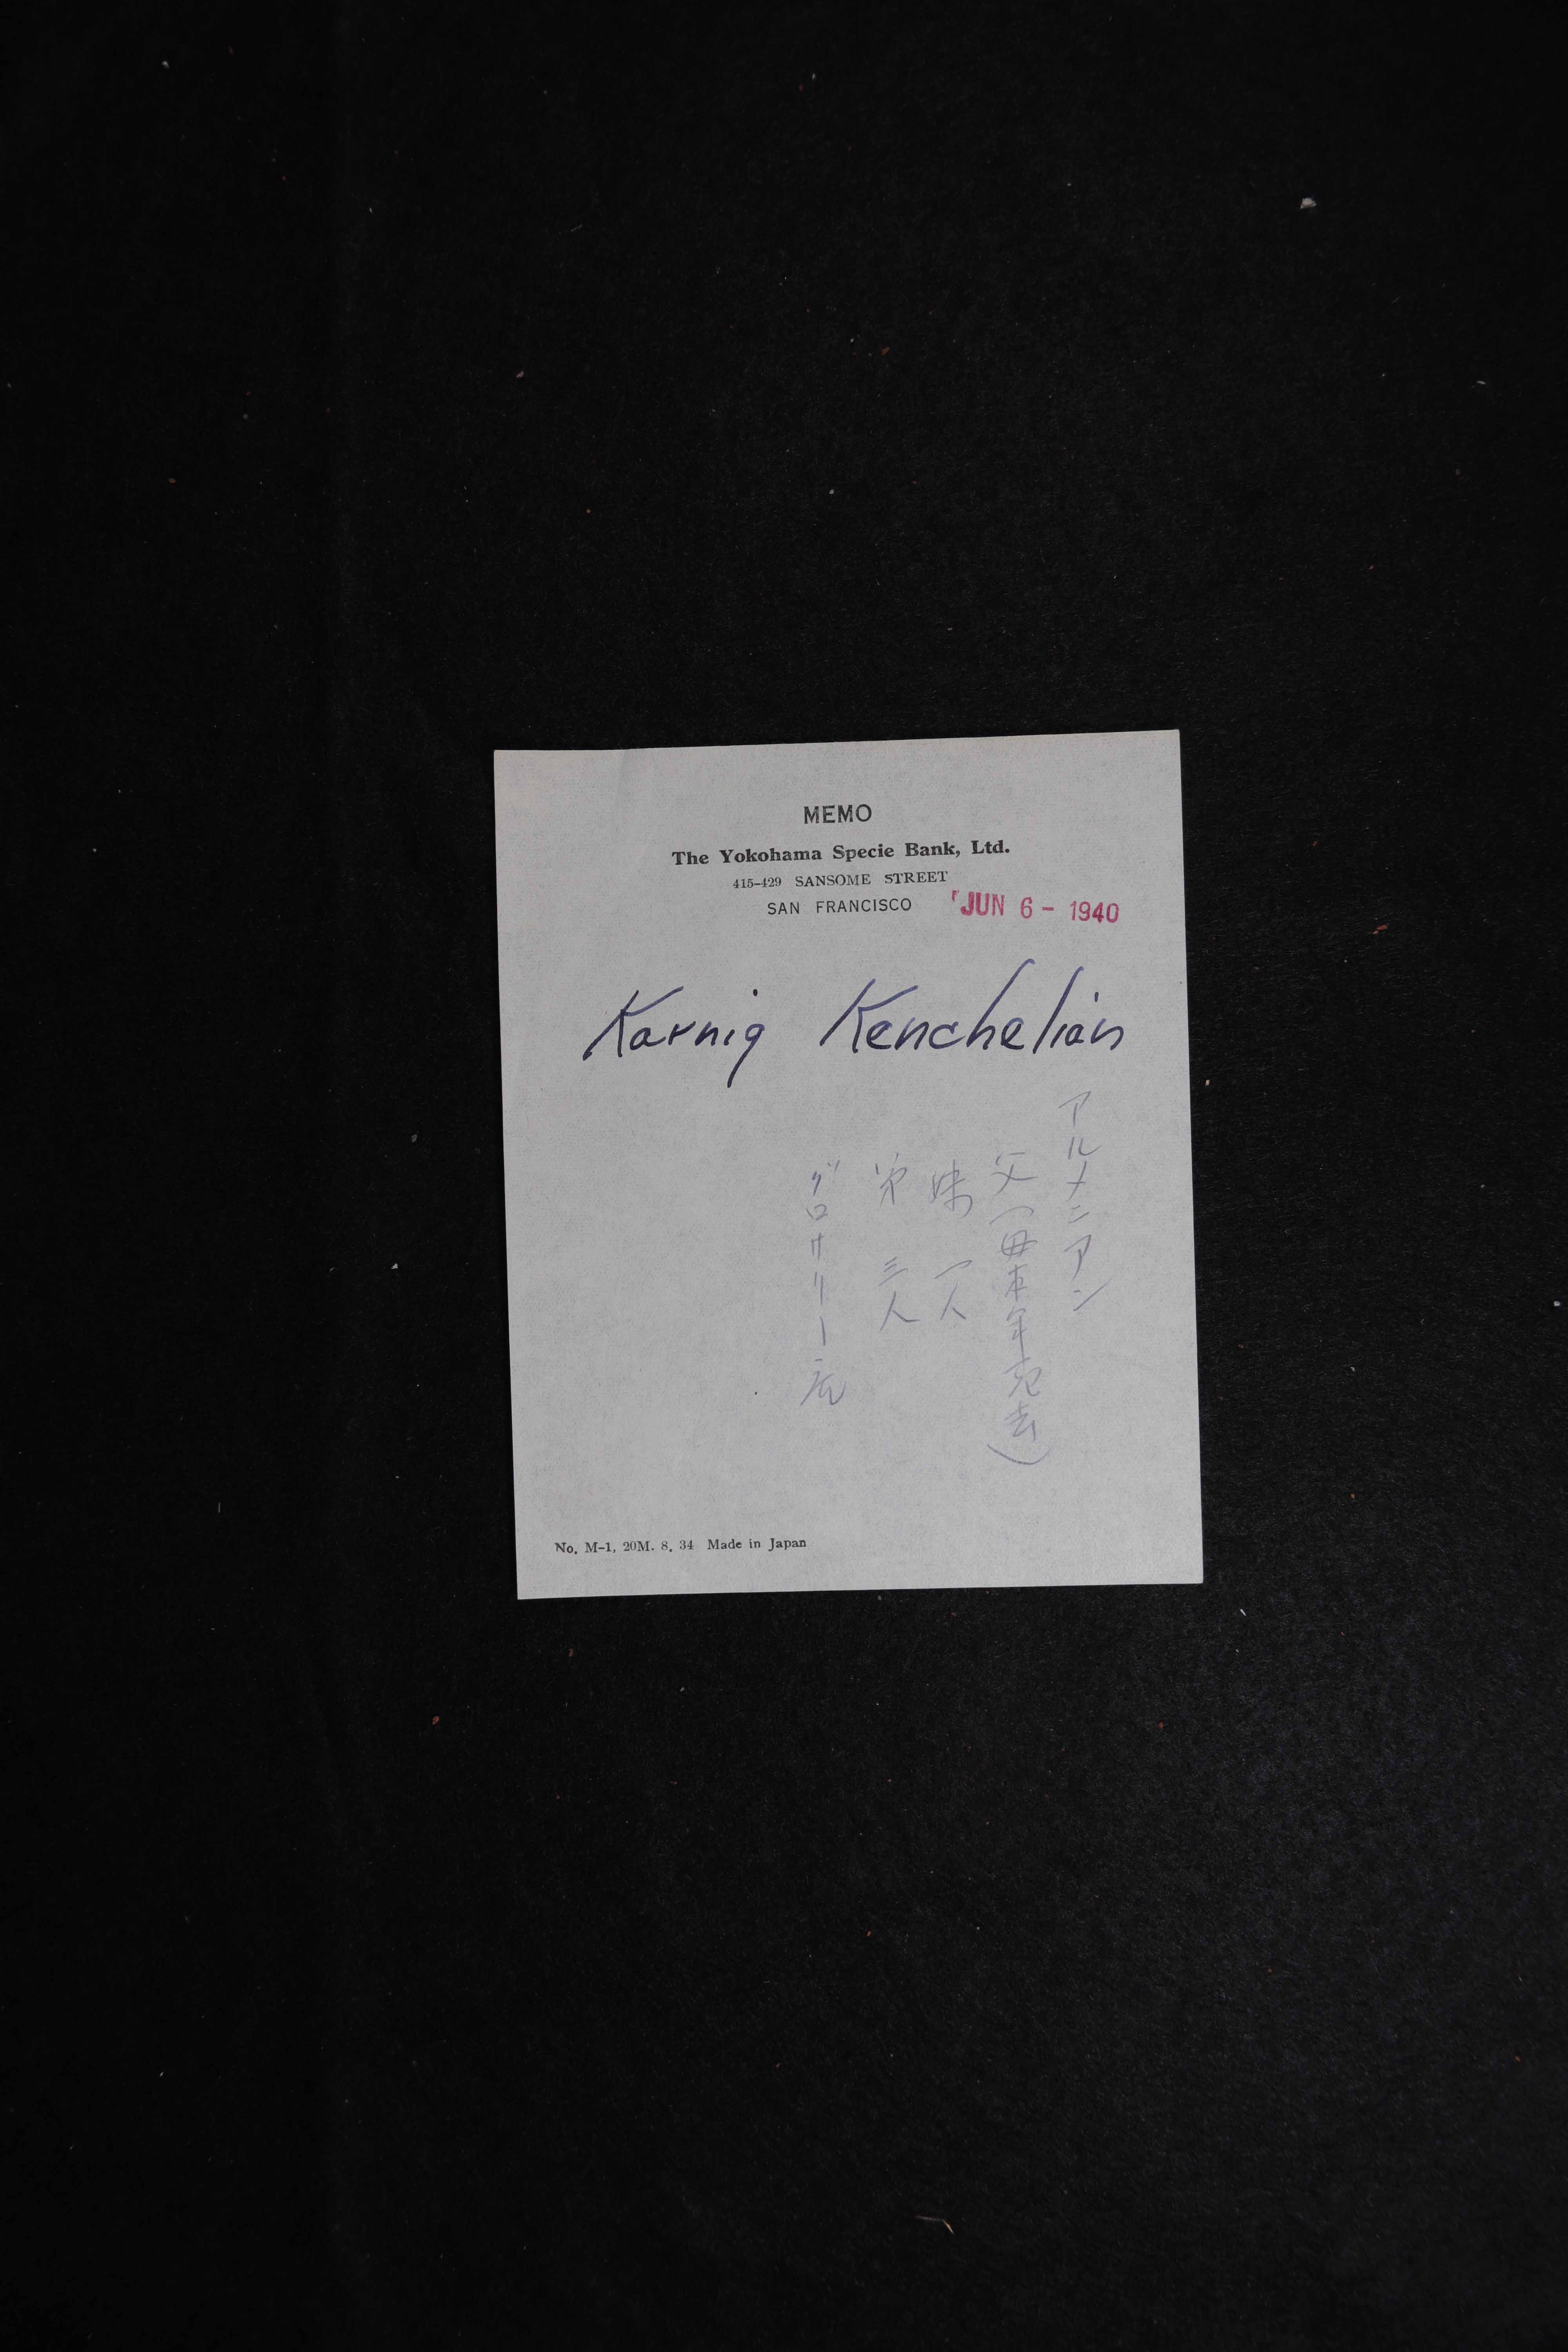 MEMO
The Yokohama Specie Bank, Ltd.
415-429 SANSOME STREET
SAN FRANCISCO
JUN 6 - 1940
Karnig Kenchelian
アルメニアン
父（母本年死去）
妹 一人
弟 三人
グロサリー店
No. M-1, 20M. 8. 34 Made in Japan